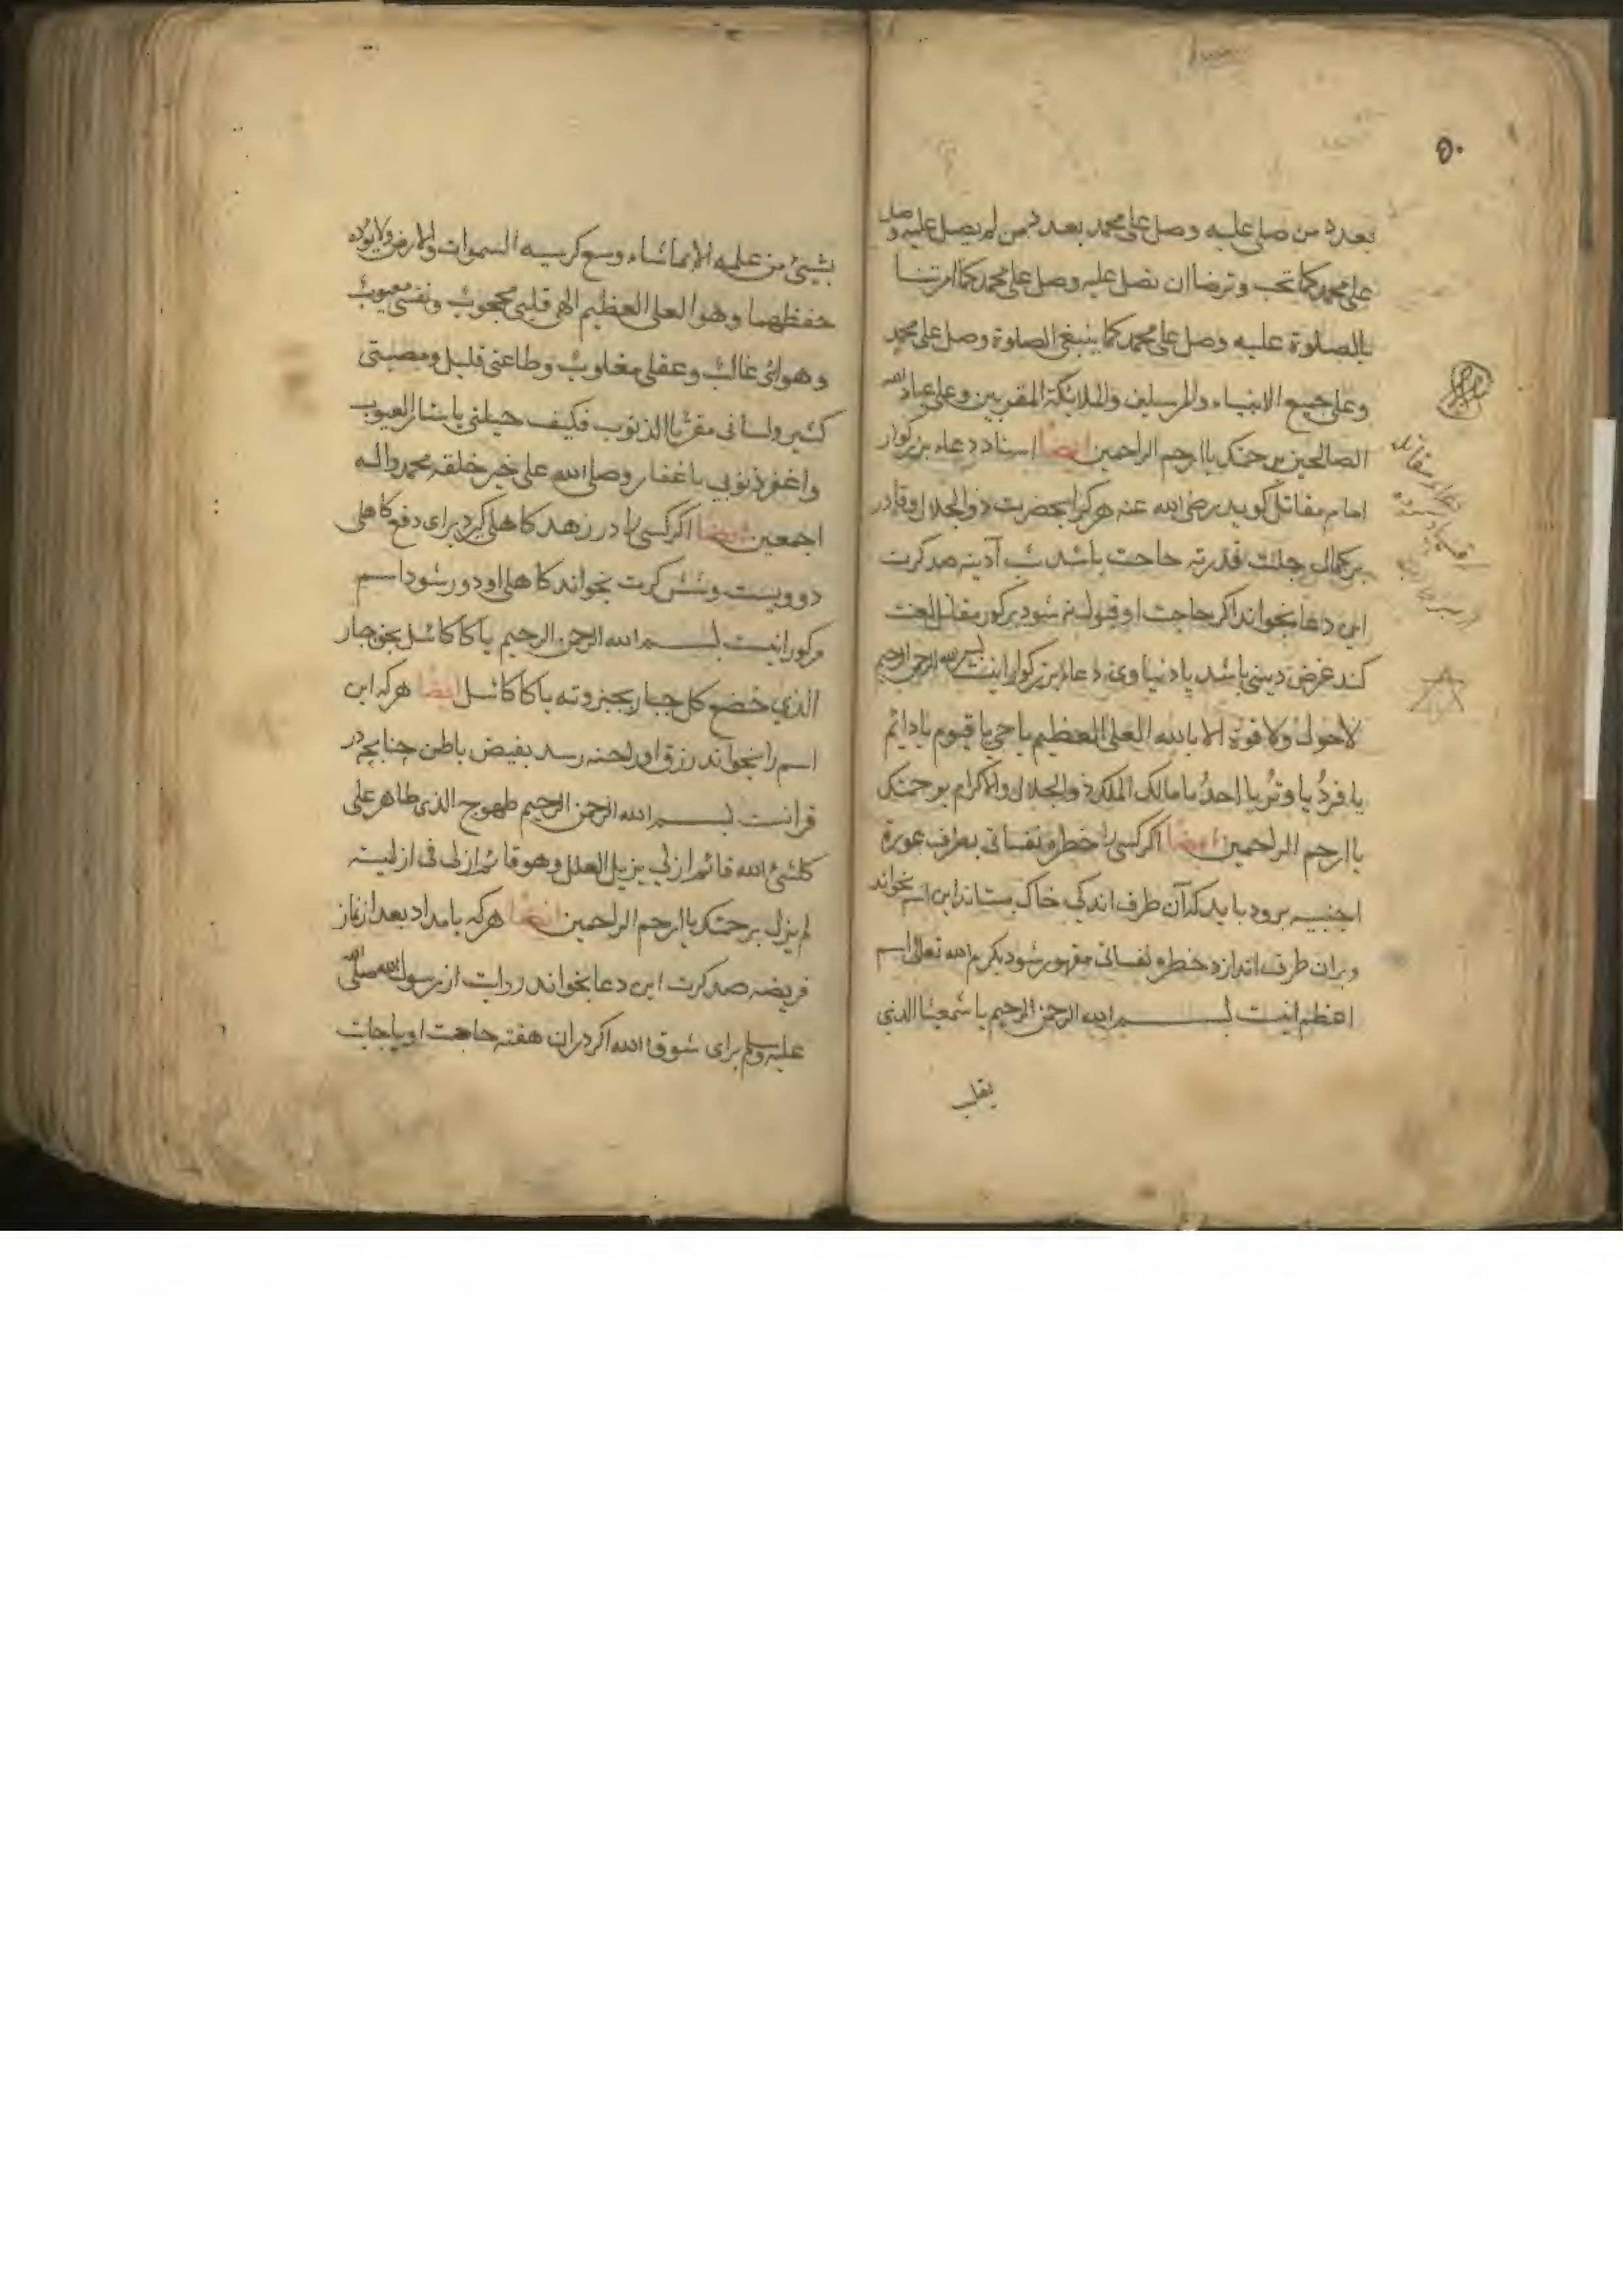 ٥٠
بعدد من صلی علیه وصل علی محمد بعدد من لم یصل علیه وصل
علی محمد کما تحب وترضا ان تصل علیه وصل علی محمد کما امرتنا
بالصلوة علیه وصل علی محمد کما ینبغی الصلوة وصل علی محمد
وعلی جمیع الانبیاء والمرسلین والملایکة المقربین وعلی عباد الله
الصالحین برحمتک یا ارحم الراحمین ایضا اسناد دعاء بزرکوار
امام مقاتل کوید رضی الله عنه هرکرا بحضرت ذوالجلال وقادر
برکمال جلت قدرته حاجت باشد شب آدینه صد کرت
این دعا بخواند اکر حاجت او قبول نه شود برکور مقاتل لعنت
کند غرض دینی باشد یا دنیاوی دعاء بزرکوار اینست بسم الله الرحمن الرحیم
لاحول ولا قوة الا بالله العلی العظیم یا حی یا قیوم یا دائم
یا فرد یا وتر یا احد یا مالک الملک ذوالجلال والاکرام برحمتک
یا ارحم الراحمین ایضا اکر کسی را خطره نفسانی بطرف عورة
اجنبیه برود باید که آن طرف اندکی خاک بستاند این اسم بخواند
وبران طرف اندازد خطره نفسانی مقهور شود بکرم الله تعالی اسم
اعظم اینست بسم الله الرحمن الرحیم یا شمعیثا الذی
بشیئ من علمه الا بما شاء وسع کرسیه السموات والارض ولا یوده
حفظهما وهو العلی العظیم الهی قلبی محجوب ونفسی معیوب
وهوائی غالب وعقلی مغلوب وطاعتی قلیل ومعصیتی
کثیر ولسانی مقر بالذنوب فکیف حیلتی یا ستار العیوب
واغفر ذنوبی یا غفار وصلی الله علی خیر خلقه محمد واله
اجمعین ایضا اکر کسی را در زهد کاهلی کیرد برای دفع کاهلی
دوویست وشش کرت بخواند کاهلی او دور شود اسم
مذکور اینست بسم الله الرحمن الرحیم یا کاکائیل بحق جبار
الذی خضع کل جبار بجبروته یا کاکائیل ایضا هرکه این
اسم را بخواند رزق اور لحنه رسد بفیض باطن چنانچه در
قرانست بسم الله الرحمن الرحیم طهوج الذی ظاهر علی
کلشیئ الله قائم ازلی یزیل العلل وهو قائم ازلی فی ازلیته
لم یزل برحمتک یا ارحم الراحمین ایضا هرکه بامداد بعد از نماز
فریضه صد کرت این دعا بخواند روایت از رسول الله صلی الله
علیه وسلم برای شوق الله اکر دران هفته حاجت او باجابت